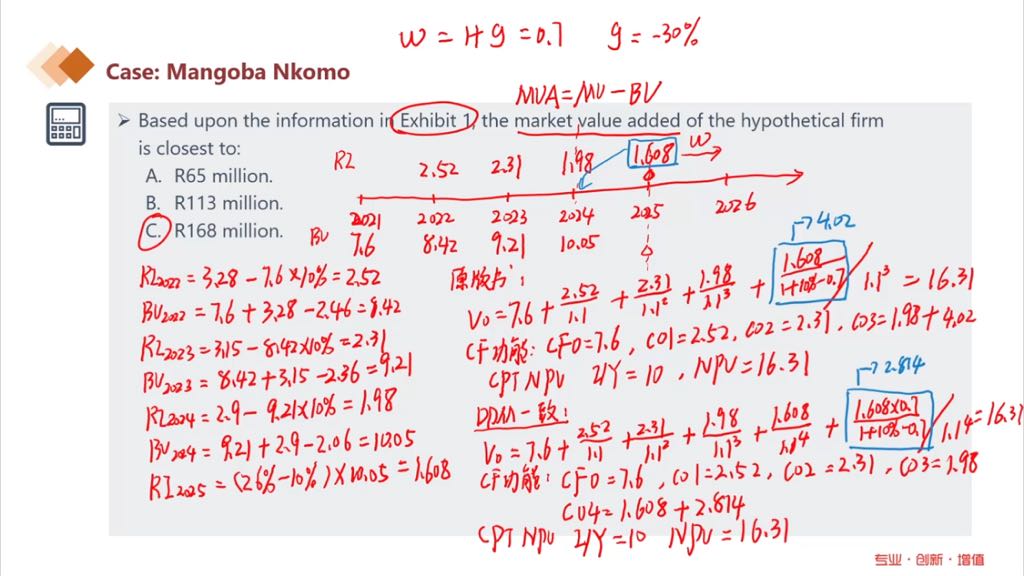 W = 1+g = 0.7 g = -30%
Case: Mangoba Nkomo
MVA = MV - BV
➢ Based upon the information in Exhibit 1, the market value added of the hypothetical firm
is closest to:
A. R65 million.
B. R113 million.
C. R168 million.
RI 2.52 2.31 1.98 1.608 W
2021 2022 2023 2024 2025 2026
BV 7.6 8.42 9.21 10.05
RI2022 = 3.28 - 7.6×10% = 2.52
BV2022 = 7.6 + 3.28 - 2.46 = 8.42
RI2023 = 3.15 - 8.42×10% = 2.31
BV2023 = 8.42 + 3.15 - 2.36 = 9.21
RI2024 = 2.9 - 9.21×10% = 1.98
BV2024 = 9.21 + 2.9 - 2.06 = 10.05
RI2025 = (26% - 10%) × 10.05 = 1.608
→ 4.02
原版书:
V0 = 7.6 + 2.52/1.1 + 2.31/1.1² + 1.98/1.1³ + 1.608/(1+10%-0.7) / 1.1³ = 16.31
CF功能: CF0 = 7.6, C01 = 2.52, C02 = 2.31, C03 = 1.98 + 4.02
CPT NPV I/Y = 10, NPV = 16.31
→ 2.814
DDM一致:
V0 = 7.6 + 2.52/1.1 + 2.31/1.1² + 1.98/1.1³ + 1.608/1.1⁴ + 1.608×0.7/(1+10%-0.7) / 1.1⁴ = 16.31
CF功能: CF0 = 7.6, C01 = 2.52, C02 = 2.31, C03 = 1.98
C04 = 1.608 + 2.814
CPT NPV I/Y = 10 NPV = 16.31
专业·创新·增值